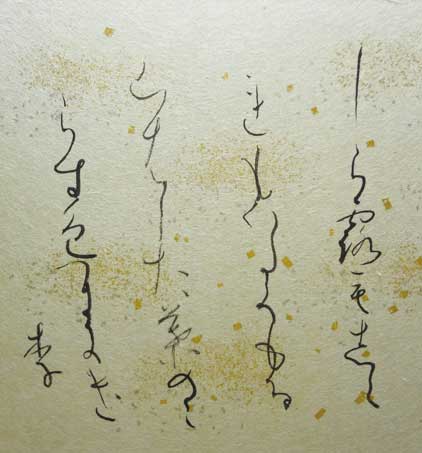 しら露もしぐ
れもいたくもる
山はした葉のこ
らず色づきにけり
李